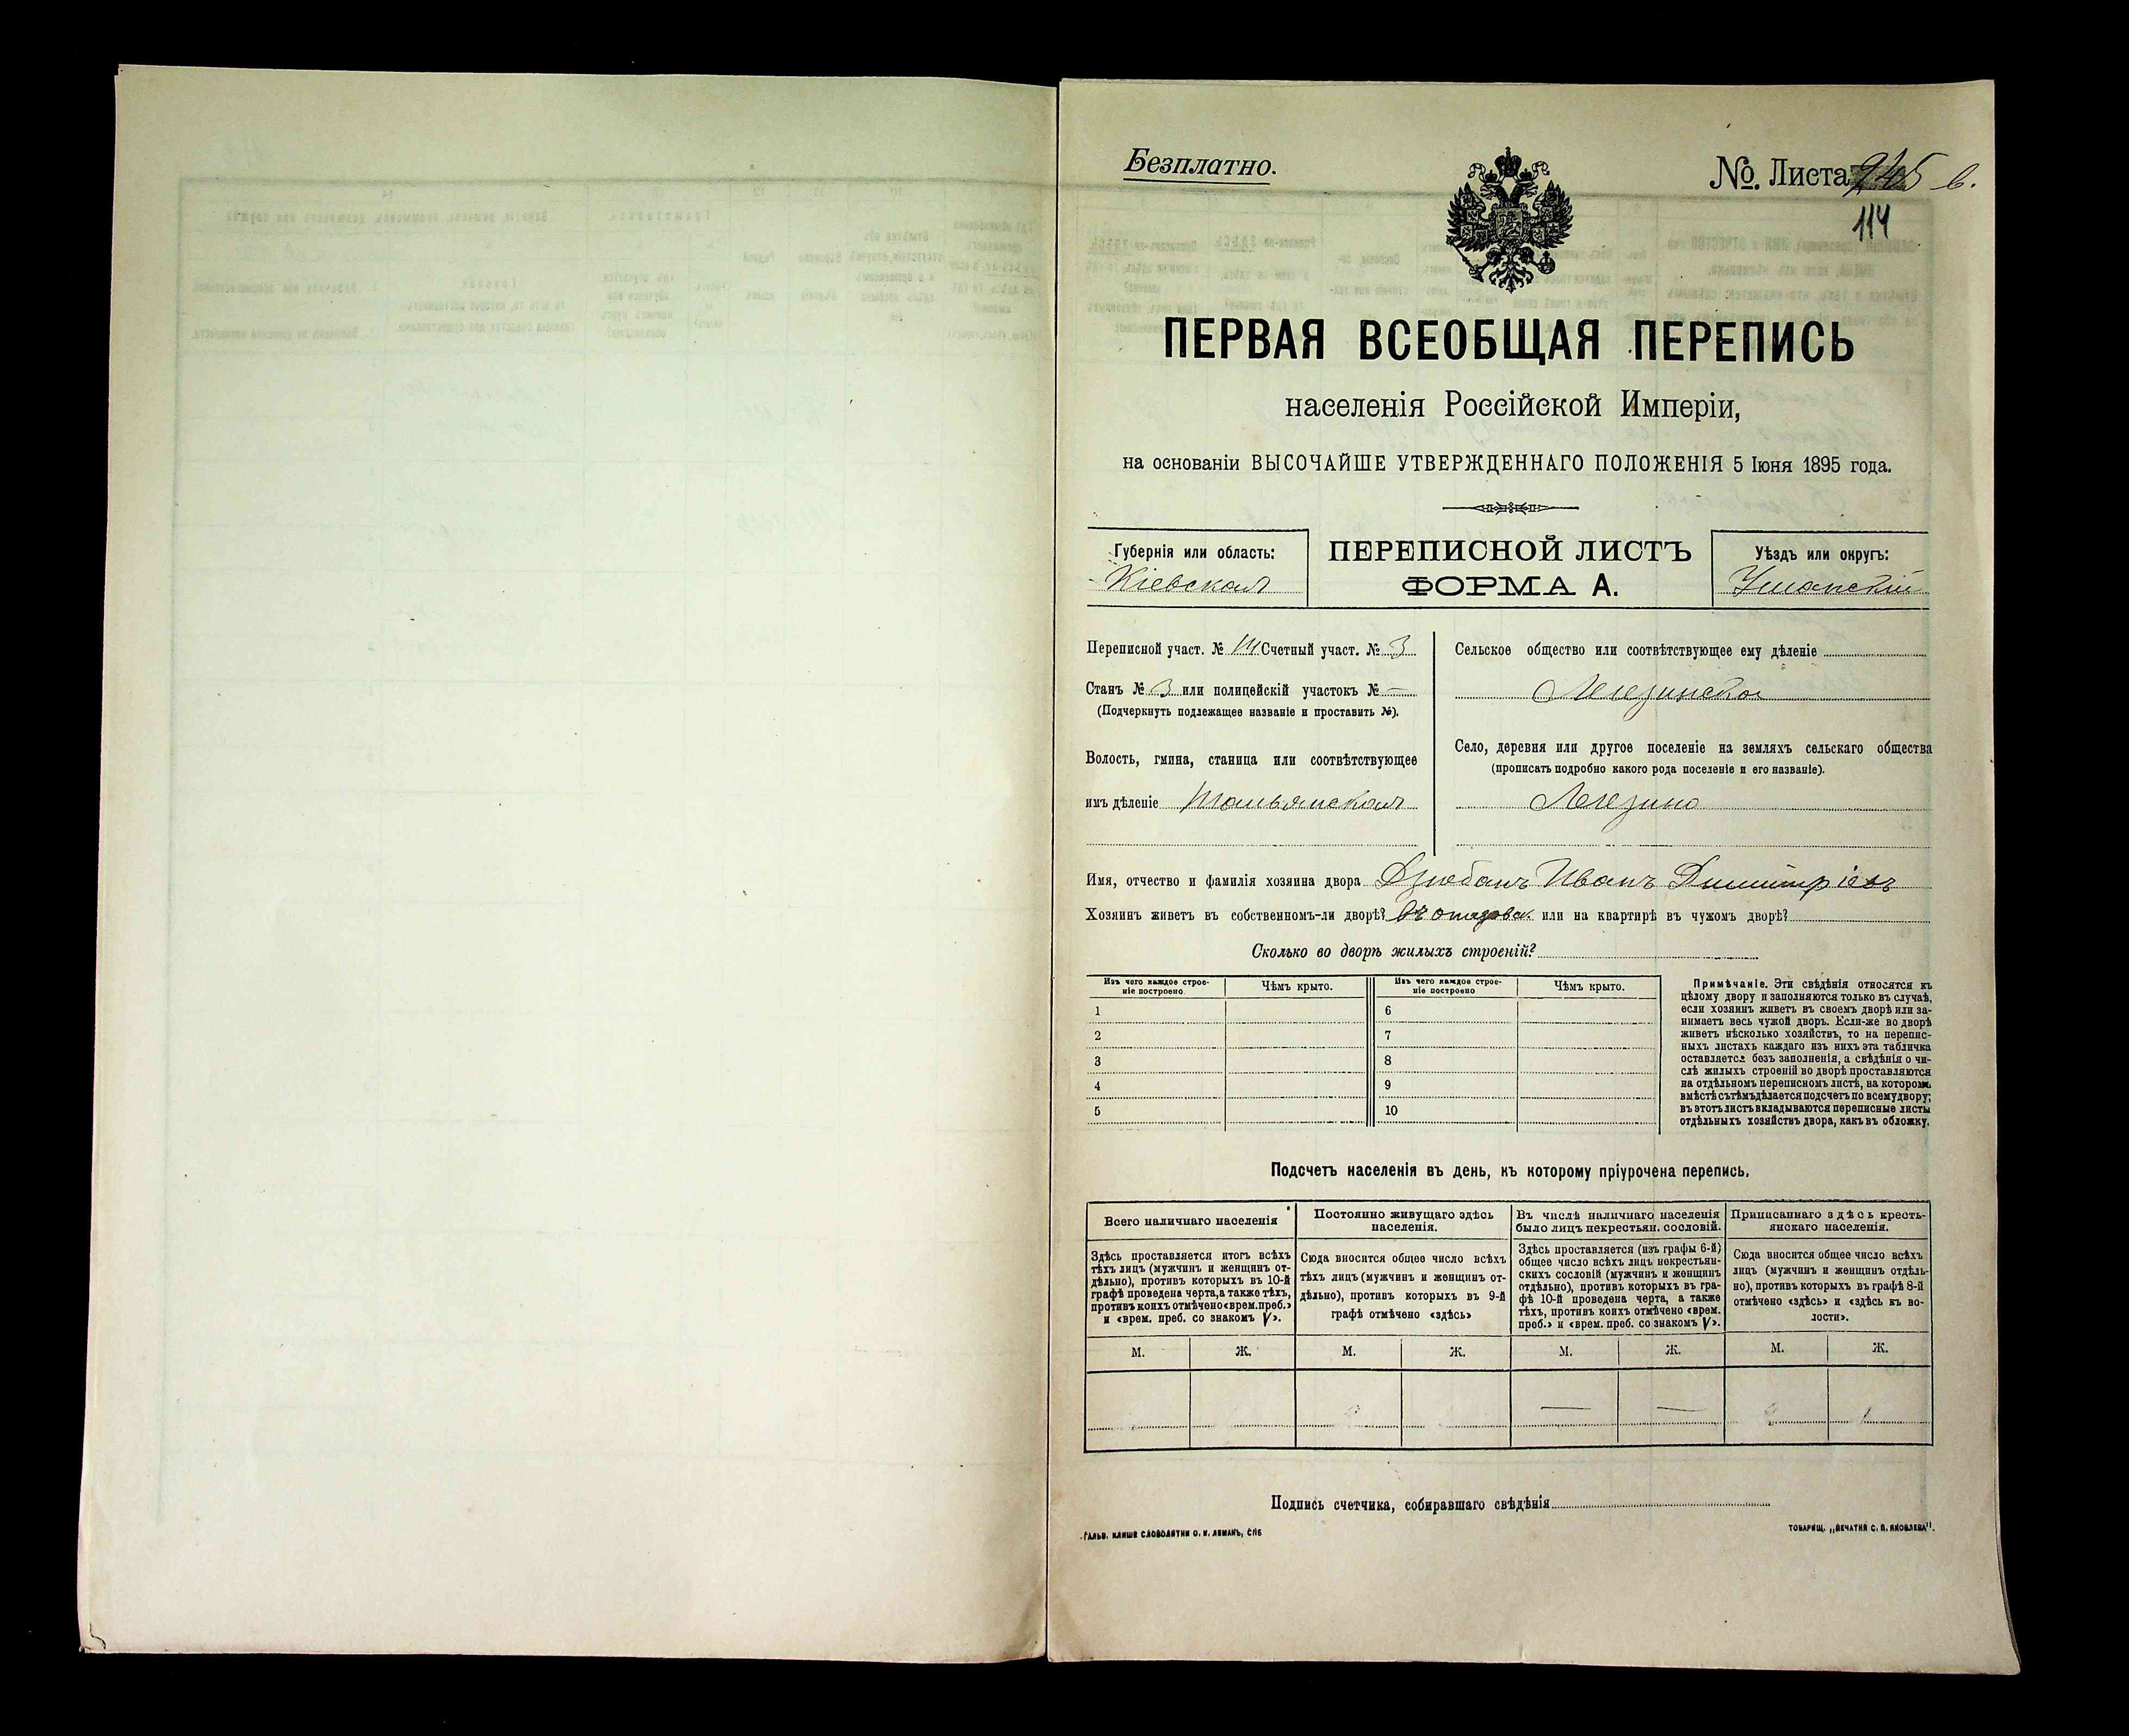 Безплатно.
№. Листа 945 в.
114
ПЕРВАЯ ВСЕОБЩАЯ ПЕРЕПИСЬ
населенія Россійской Имперіи,
на основаніи ВЫСОЧАЙШЕ УТВЕРЖДЕННАГО ПОЛОЖЕНІЯ 5 Іюня 1895 года.
Губернія или область:
Кіевская
ПЕРЕПИСНОЙ ЛИСТЪ
ФОРМА А.
Уѣздъ или округъ:
Уманскій
Переписной участ. № III Счетный участ. № 3
Станъ № 3 или полицейскій участокъ № —
(Подчеркнуть подлежащее названіе и проставить №).
Волость, гмина, станица или соотвѣтствующее
имъ дѣленіе Тальянская
Сельское общество или соотвѣтствующее ему дѣленіе
Легезинское
Село, деревня или другое поселеніе на земляхъ сельскаго общества
(прописать подробно какого рода поселеніе и его названіе).
Легезино
Имя, отчество и фамилія хозяина двора Дзюбанъ Иванъ Димитріевъ
Хозяинъ живетъ въ собственномъ-ли дворѣ? или на квартирѣ въ чужомъ дворѣ?
Сколько во дворѣ жилыхъ строеній?
Изъ чего каждое строе-
ніе построено
Чѣмъ крыто.
Изъ чего каждое строе-
ніе построено
Чѣмъ крыто.
1
2
3
4
5
6
7
8
9
10
Примѣчаніе. Эти свѣдѣнія относятся къ
цѣлому двору и заполняются только въ случаѣ,
если хозяинъ живетъ въ своемъ дворѣ или за-
нимаетъ весь чужой дворъ. Если-же во дворѣ
живетъ нѣсколько хозяйствъ, то на перепис-
ныхъ листахъ каждаго изъ нихъ эта табличка
оставляется безъ заполненія, а свѣдѣнія о чи-
слѣ жилыхъ строеній во дворѣ проставляются
на отдѣльномъ переписномъ листѣ, на которомъ
вмѣстѣ съ тѣмъ дѣлается подсчетъ по всему двору;
въ этотъ листъ вкладываются переписные листы
отдѣльныхъ хозяйствъ двора, какъ въ обложку.
Подсчетъ населенія въ день, къ которому пріурочена перепись.
Всего наличнаго населенія
Здѣсь проставляется итогъ всѣхъ
тѣхъ лицъ (мужчинъ и женщинъ от-
дѣльно), противъ которыхъ въ 10-й
графѣ проведена черта, а также тѣхъ,
противъ коихъ отмѣчено «врем. преб.»
и «врем. преб. со знакомъ V».
Постоянно живущаго здѣсь
населенія.
Сюда вносится общее число всѣхъ
тѣхъ лицъ (мужчинъ и женщинъ от-
дѣльно), противъ которыхъ въ 9-й
графѣ отмѣчено «здѣсь»
Въ числѣ наличнаго населенія
было лицъ некрестьян. сословій.
Здѣсь проставляется (изъ графы 6-й)
общее число всѣхъ лицъ некрестьян-
скихъ сословій (мужчинъ и женщинъ
отдѣльно), противъ которыхъ въ гра-
фѣ 10-й проведена черта, а также
тѣхъ, противъ коихъ отмѣчено «врем.
преб.» и «врем. преб. со знакомъ V».
Приписаннаго здѣсь кресть-
янскаго населенія.
Сюда вносится общее число всѣхъ
лицъ (мужчинъ и женщинъ отдѣль-
но), противъ которыхъ въ графѣ 8-й
отмѣчено «здѣсь» и «здѣсь къ во-
лости».
М. Ж. М. Ж. М. Ж. М. Ж.
— —
Подпись счетчика, собиравшаго свѣдѣнія
ГАЛЬВ. КЛИШЕ СЛОВОЛИТНИ О. И. ЛЕМАНЪ, СПБ
ТОВАРИЩ. „ПЕЧАТНЯ С. П. ЯКОВЛЕВА".